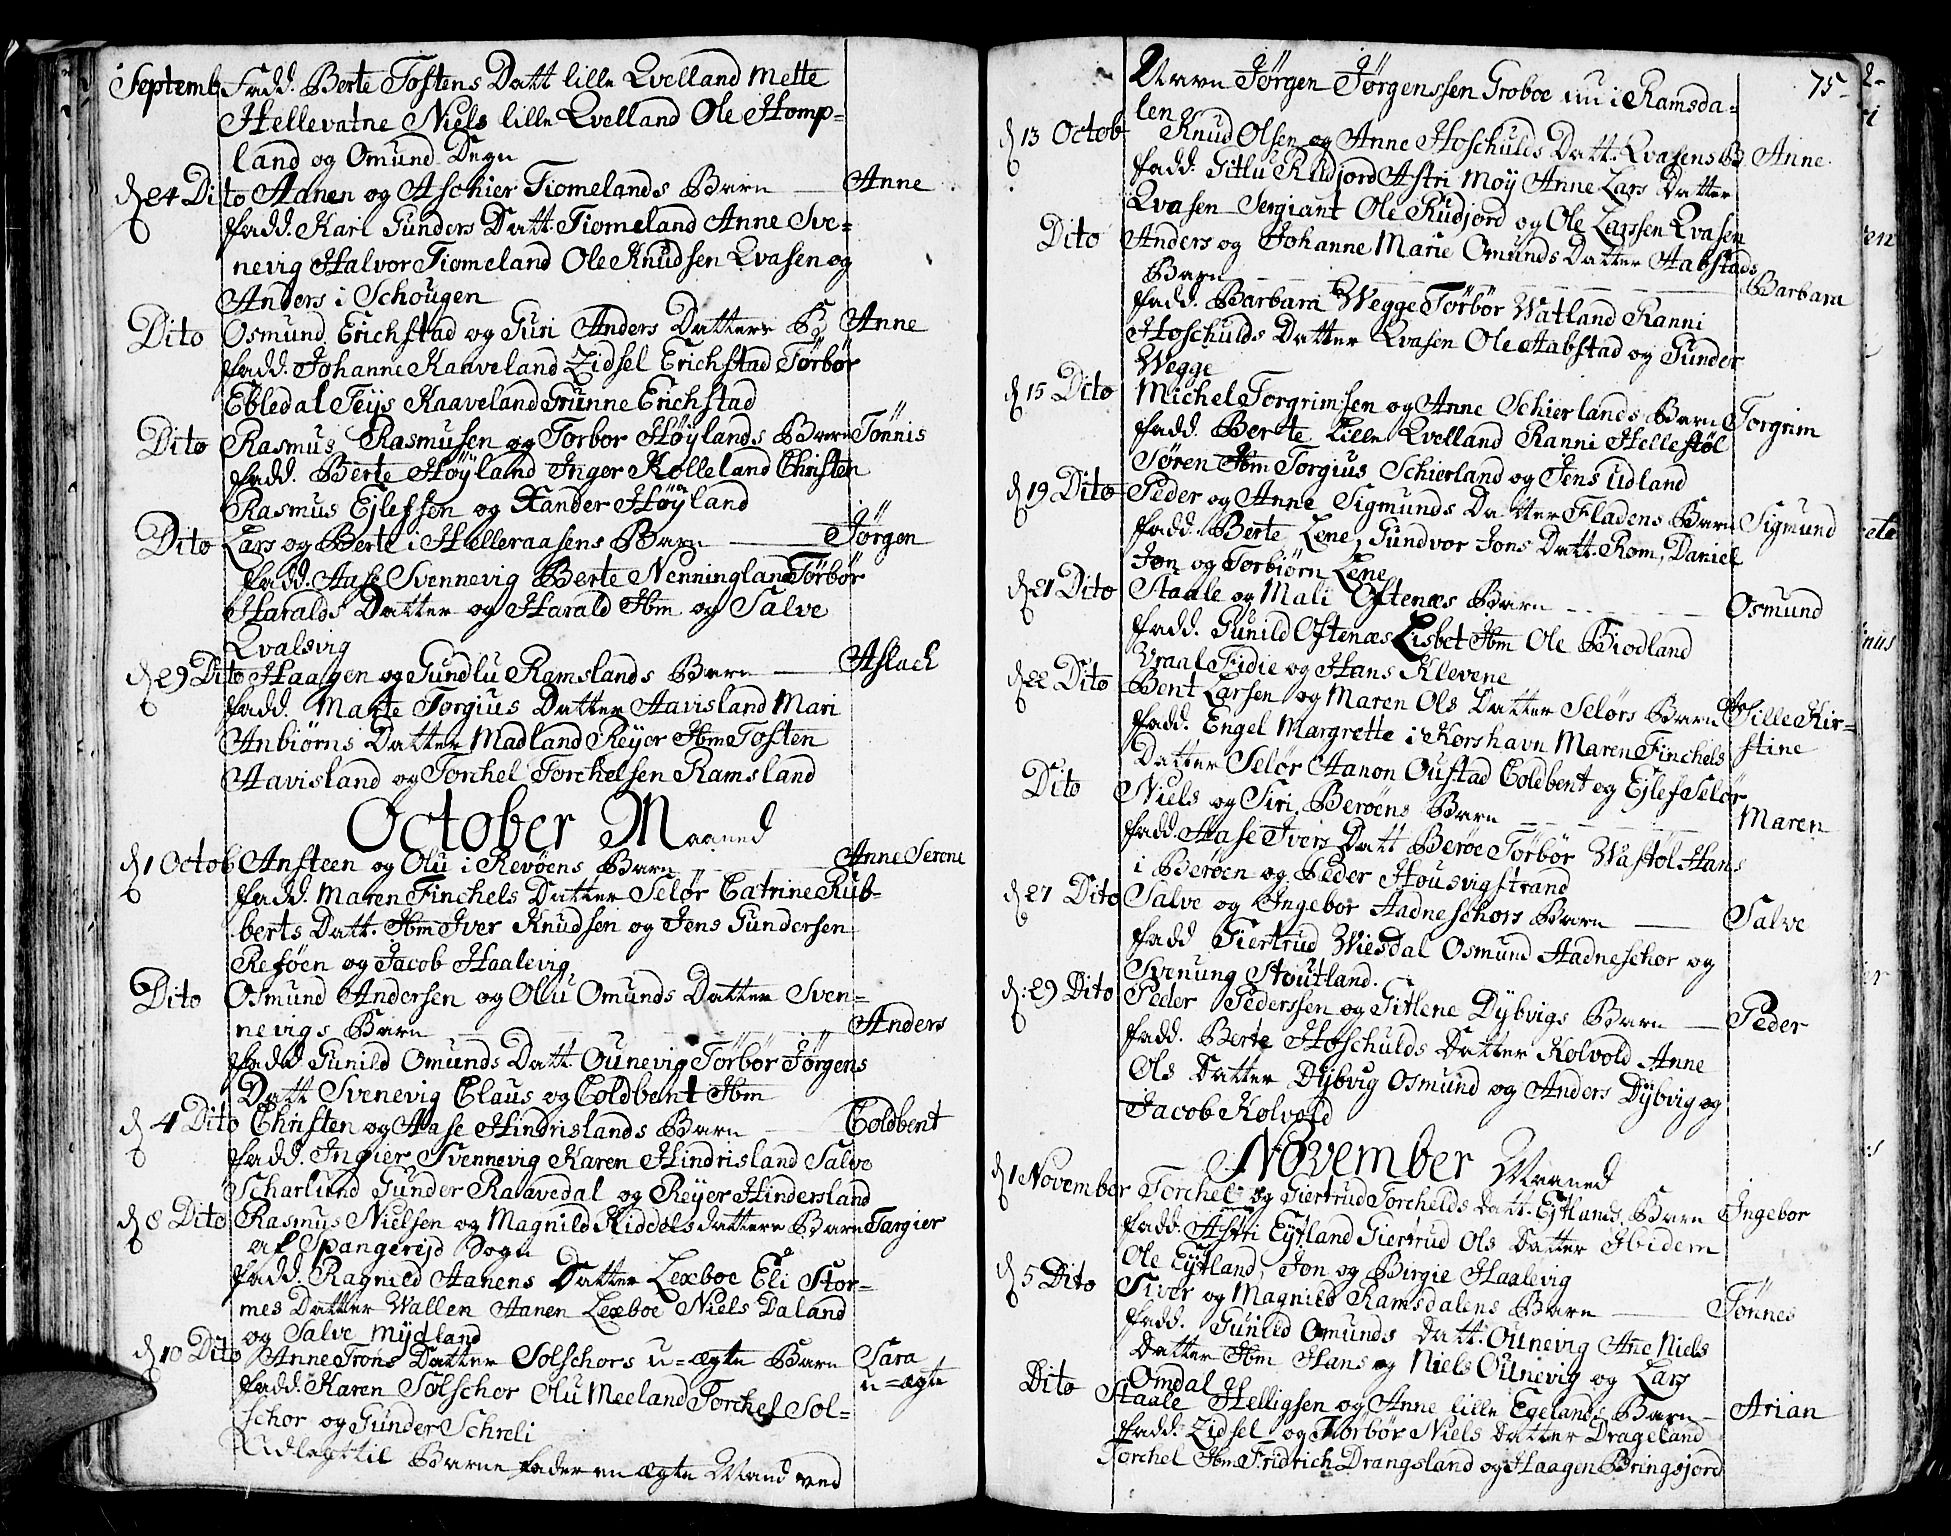 Septemb. Fadd. Berte Tostens Datt lille Qvelland Mette
Hellevatne Niels lille Qvelland Ole Homp-
land og Omund Degn
d 24 Dito Aanen og Aschier Tiomelands Barn — Anne
fadd. Kari Gunders Datt. Tiomeland Anne Sve-
nevig Halvor Tiomeland Ole Knudsen Qvasen og
Anders i Schougen
Dito Osmund Erichstad og Guri Anders Datters B Anne
fadd. Johanne Kaaveland Zidsel Erichstad Törbör
Ebledal Teijs Kaaveland Grunne Erichstad
Dito Rasmus Rasmusen og Torbor Höylands Barn Tönnis
fadd. Berte Höyland Inger Kolleland Christen
Rasmus Ejlefsen og Xander Höyland
Dito Lars og Berte i Helleraasens Barn — Jörgen
fadd. Aase Svennevig Berte Nenningland Törbör
Haralds Datter og Harald Ibm og Salve
Qvalsvig
d 29 Dito Haagen og Gundlu Ramslands Barn — Aslach
fadd. Marte Torgius Datter Aavisland Mari
Anbiörns Datter Madland Reyer Ibm Tosten
Aavisland og Torchel Torchelsen Ramsland
October Maaned
d 1 Octob Ansteen og Olu i Revöens Barn — Anne Serene
fadd. Maren Finchels Datter Selör Catrine Rub-
berts Datt. Ibm Iver Knudsen og Jens Gundersen
Reföen og Jacob Haalevig
Dito Osmund Andersen og Ollu Omunds Datter Sven-
nevigs Barn — Anders
fadd Gunild Omunds Datt. Ounevig Törbör Jörgens
Datt Svenevig Claus og Coldbent Ibm
d 4 Dito Christen og Aase Hindrislands Barn — Coldbent
fadd. Ingier Svennevig Karen Hindrisland Salve
Scharlund Gunder Raavedal og Reyer Hindersland
d 8 Dito Rasmus Nielsen og Magnild Kiddels datters Barn Targier
af Spangerejd Sogn
fadd. Ragnild Aanens Datter Lexboe Eli Stor-
mes Datter Wallen Aanen Lexboe Niels Daland
og Salve Mydland
d 10 Dito Anne Trons Datter Solschors u=ægte Barn Sara
u=ægte
fadd. Karen Solschor Olu Meeland Torchel Sol-
schor og Gunder Schreli
Udlagt til Barne fader en ægte Mand ved
75
Navn Jörgen Jörgenssen Groboe nu i Ramsda-
len
d 13 Octob Knud Olsen og Anne Hoschulds Datt. Qvasens B Anne
fadd. Gitlu Rudjord Astri Moy Anne Lars Datter
Qvasen Sergiant Ole Rudjord og Ole Larssen Qvasen
Dito Anders og Johanne Marie Omunds Datter Aabstads
Barn — Barbara
fadd. Barbara Wegge Törbör Watland Ranni
Hoschulds Datter Qvasen Ole Aabstad og Gunder
Wegge
d 15 Dito Michel Torgrimsen og Anne Schierlands Barn Torgrim
fadd. Berte Lille Qvelland Ranni Hellestöl
Sören Ibm Torgius Schierland og Jens Udland
d 19 Dito Peder og Anne Sigmunds Datter Fladens Barn Sigmund
fadd. Berte Lene, Gundvor Jons Datt. Rom, Daniel
Jon og Torbiörn Lene
d 21 Dito Staale og Mali Oftenæs Barn — Osmund
fadd. Gunild Oftenæs Lisbet Ibm Ole Biodland
Vraal Fidie og Hans Klevene
d 22 Dito Bent Larsen og Maren Ols Datter Selörs Barn Sille Kir-
stine
fadd. Engel Margrette i Korshavn Maren Finchels
Datter Selör Aanon Oustad Coldbent og Ejlef Selör
Dito Niels og Siri Beröens Barn — Maren
fadd. Aase Ivers Datt Beröe Törbör Wastöl Hans
i Beröen og Peder Housvigstrand
d 27 Dito Salve og Ingebor Aadneschors Barn — Salve
fadd Giertrud Wiesdal Osmund Aadneschor og
Svenung Stoutland.
d: 29 Dito Peder Pederssen og Gitlene Dybvigs Barn — Peder
fadd. Berte Hoschulds Datter Kolvold Anne
Ols Datter Dybvig Osmund og Anders Dybvig og
Jacob Kolvold
November Maaned
d 1 November Torchel og Giertrud Torchelds Datt. Ejtlands Barn Ingebor
fadd. Astri Eytland Giertrud Ols Datter Ibidem
Ole Eytland, Jon og Birgie Haalevig
d 5 Dito Siver og Magnild Ramsdalens Barn — Tönnes
fadd. Gunild Omunds Datt. Ounevig Ane Niels
Datter Ibm Hans og Niels Ounevig og Lars
Omdal
Dito Staale Helligsen og Anne lille Egelands Barn — Arian
fadd. Zidsel og Törbör Niels Datter Drageland
Torchel Ibm Fridrich Drangsland og Haagen Bringsjord